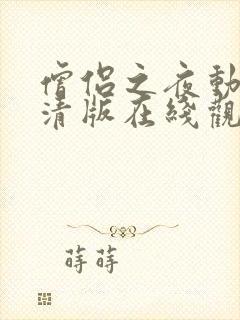 僧侶之夜動
清版在綫觀
蒔蒔